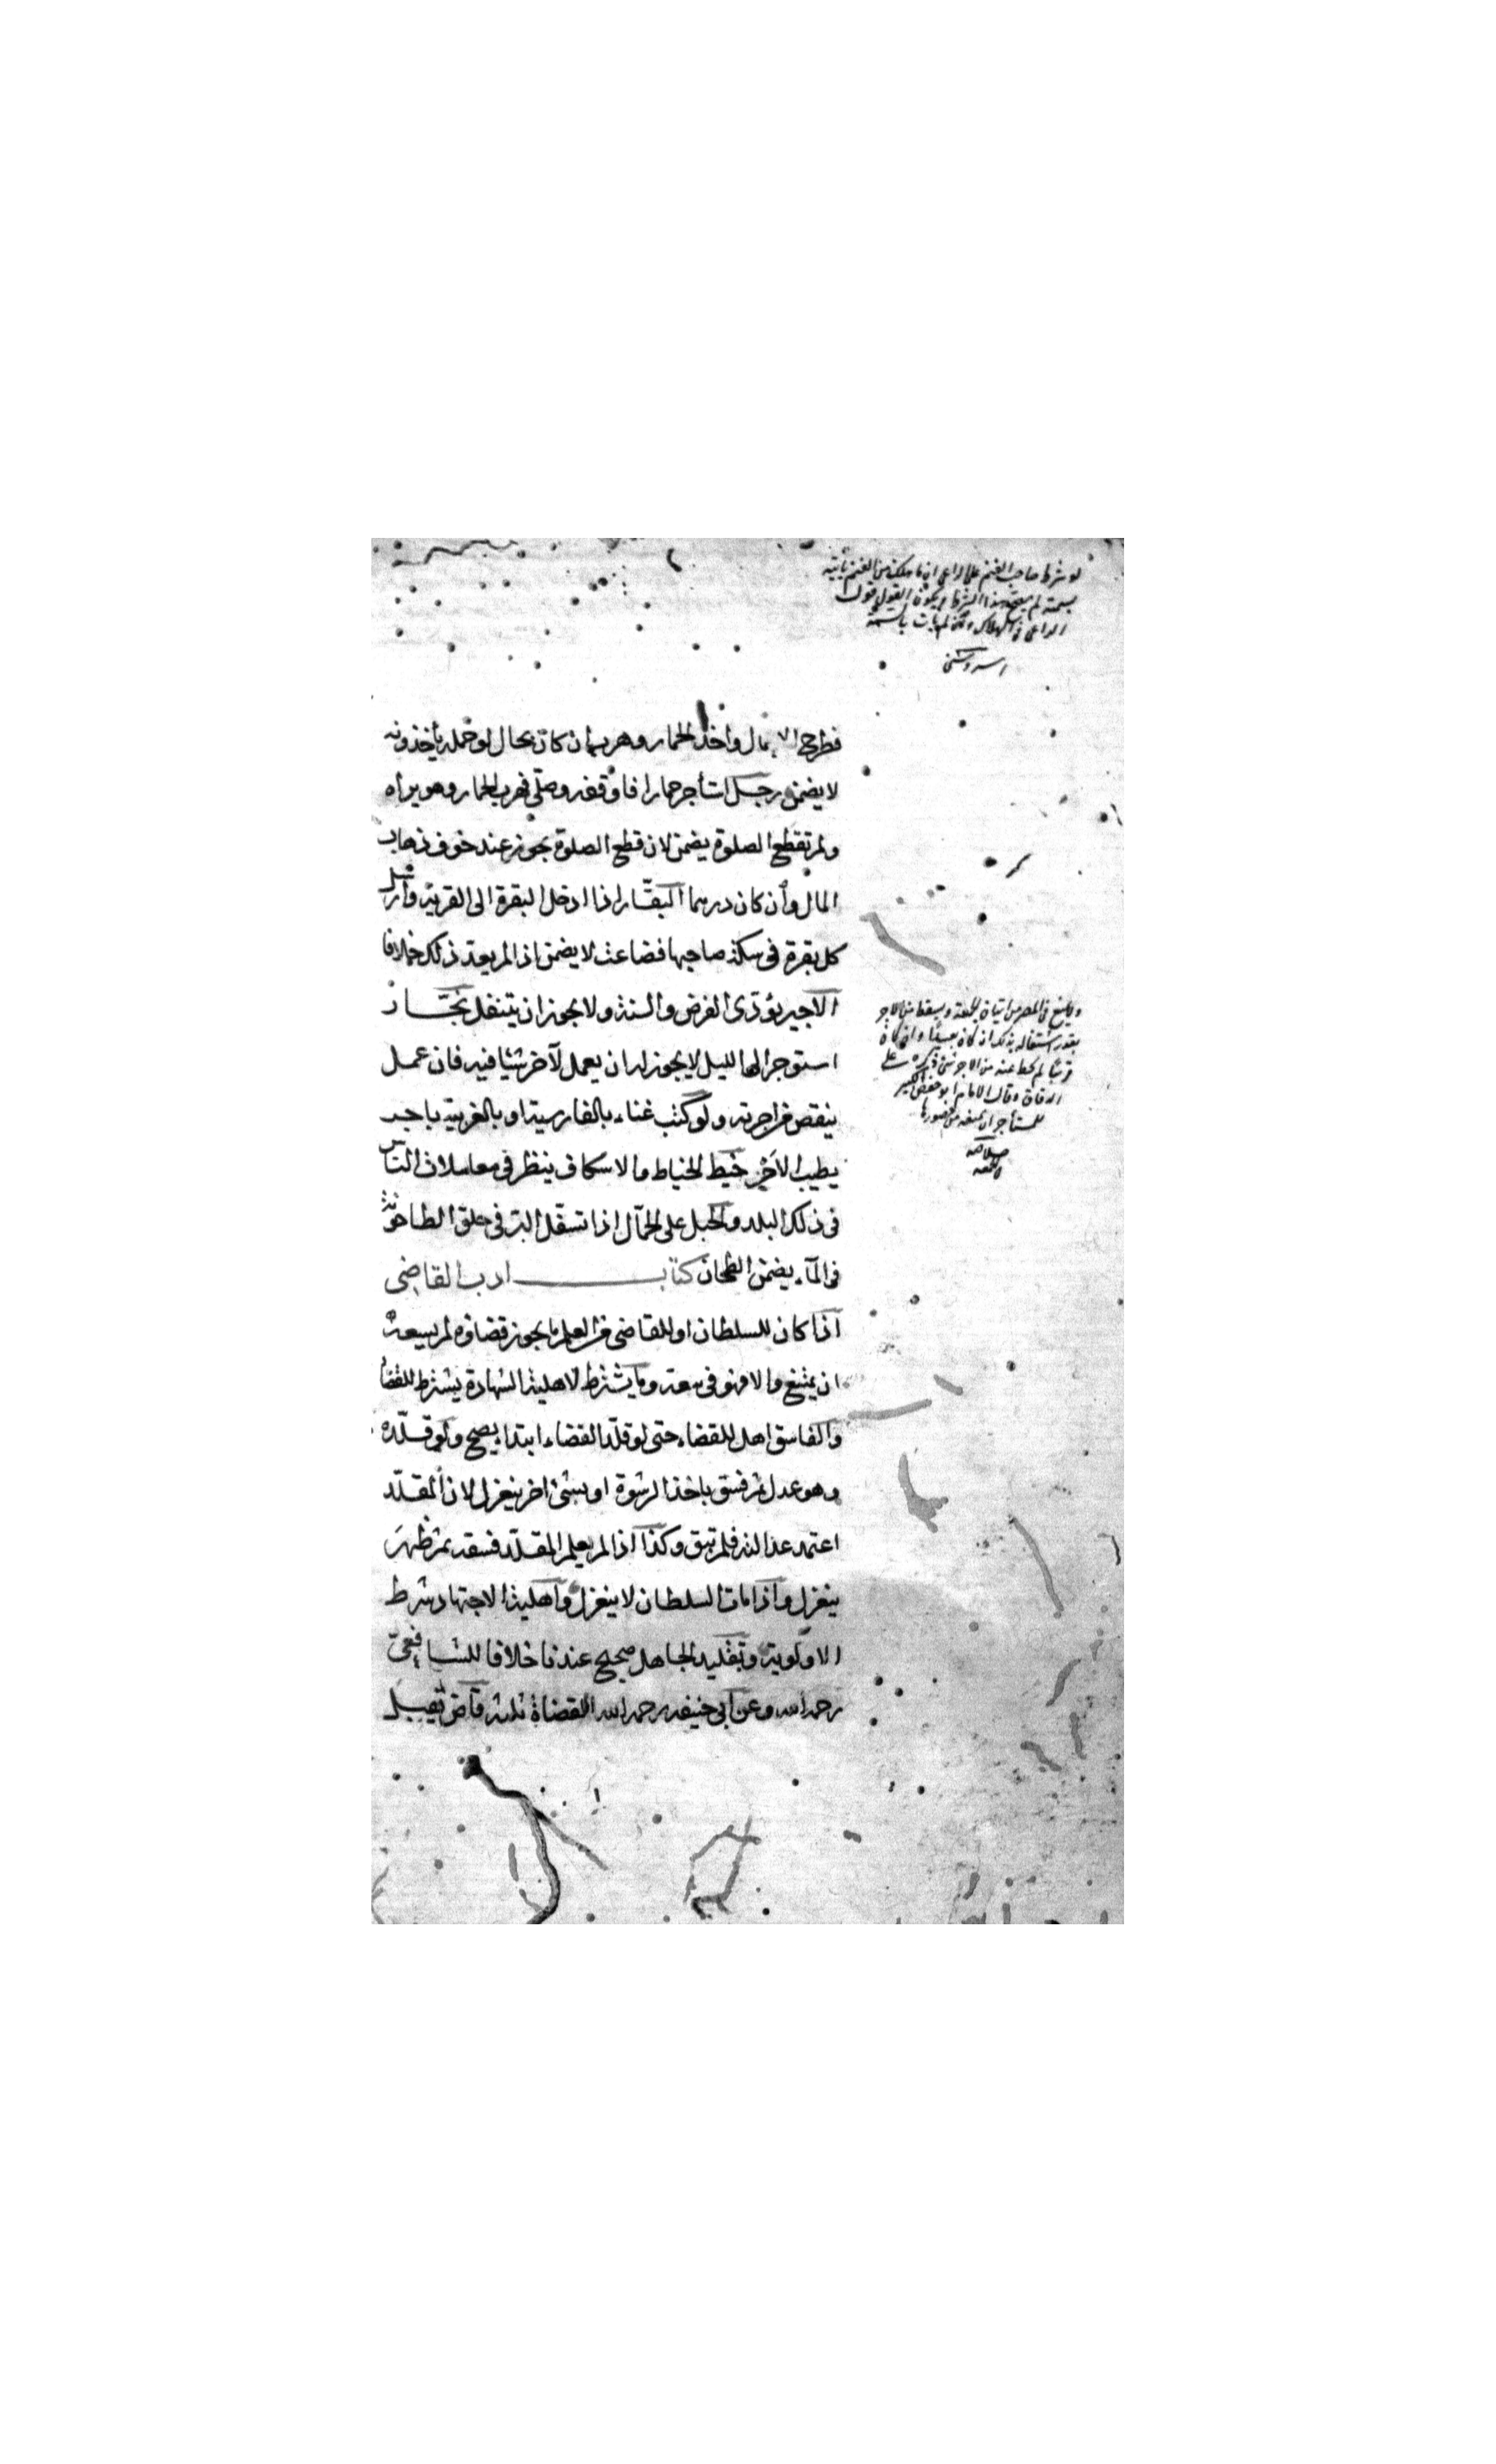 لو شرط صاحب الغنم على الراعي ان ما هلك من الغنم يأتيه
بسمته لم يصح هذا الشرط ويكون القول قول
الراعي في الهلاك وان لم يات بالسمة
اسروشني
فطرح ال مال واخذ الحمار وهرب ان كان بحال لو حمله يأخذونه
لا يضمن رجل استأجر حمارا فاوقفه وصلى فهرب الحمار وهو يراه
ولم تقطع الصلوة يضمن لان قطع الصلوة يجوز عند خوف ذهاب
المال وان كان درهما البقّار اذا ادخل البقرة الى القرية وارسل
كل بقرة في سكة صاحبها فضاعت لا يضمن اذا لم يعد ذلك خلافا
الاجير يؤدى الفرض والسنة ولا يجوز ان يتنفل نجّار
استوجر الى الليل لا يجوز له ان يعمل لآخر شيئا فيه فان عمل
ينقص من اجرته ولو كتب غناء بالفارسية او بالعربية باجر
يطيب الاجر خيط الخياط والاسكاف ينظر في معاملات الناس
في ذلك البلد والحبل على الحمّال اذا تسفل البر في حلق الطاحونة
في الماء يضمن الطحان كتاب ادب القاضي
اذا كان للسلطان او للقاضي من العلم ما يجوز قضاؤه لم يسعه
ان يمتنع والا فهو في سعة وما يشترط لاهلية الشهادة يشترط للقضاء
والفاسق اهل للقضاء حتى لو قلّد القضاء ابتداء يصح ولو قلّده
وهو عدل ثم فسق باخذ الرشوة او بشئ اخر ينعزل لان المقلّد
اعتمد عدالته فلم تبق وكذا اذا لم يعلم المقلّد فسقه ثم ظهر
ينعزل واذا مات السلطان لا ينعزل واهلية الاجتهاد شرط
الاولوية وتقليد الجاهل صحيح عندنا خلافا للشافعيّ
رحمه الله وعن ابي حنيفه رحمه الله القضاة ثلثة قاض
ويمنع في المصر من اتيان الجمعة ويسقط من الاجر
بقدر اشتغاله بذلك ان كان بعيدا وان كان
قريبا لم يحط عنه من الاجر شئ على
الدقاق وقال الامام ابو حفص الكبير
للمستأجر ان يمنعه من حضورها